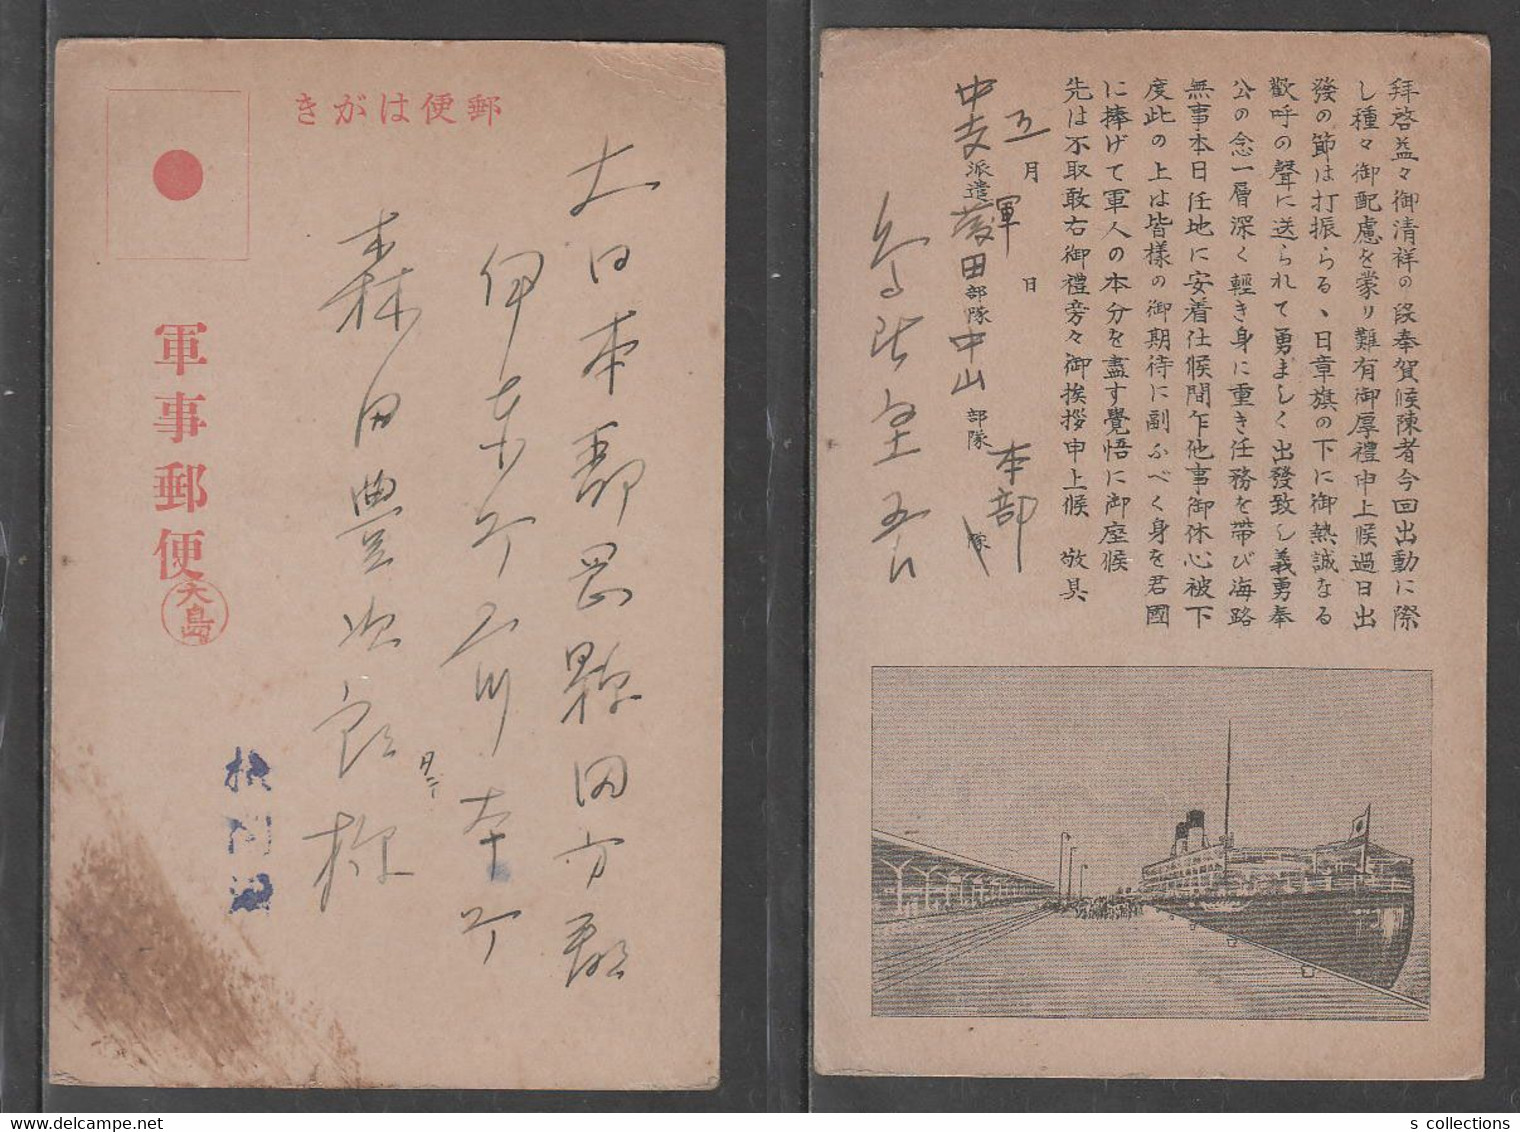 郵便はがき
軍事郵便
大島
検閲済
大日本静岡縣田方郡
伊東町
森田豊次郎様
拜啓益々御清祥の段奉賀候陳者今回出動に際
し種々御配慮を蒙り難有御厚禮申上候過日出
發の節は打振らる、日章旗の下に御熱誠なる
歡呼の聲に送られて勇ましく出發致し義勇奉
公の念一層深く輕き身に重き任務を帶び海路
無事本日任地に安着仕候間乍他事御休心被下
度此の上は皆樣の御期待に副ふべく身を君國
に捧げて軍人の本分を盡す覺悟に御座候
先は不取敢右御禮旁々御挨拶申上候 敬具
五月 日
中支派遣軍藤田部隊中山部隊本部隊
s collections